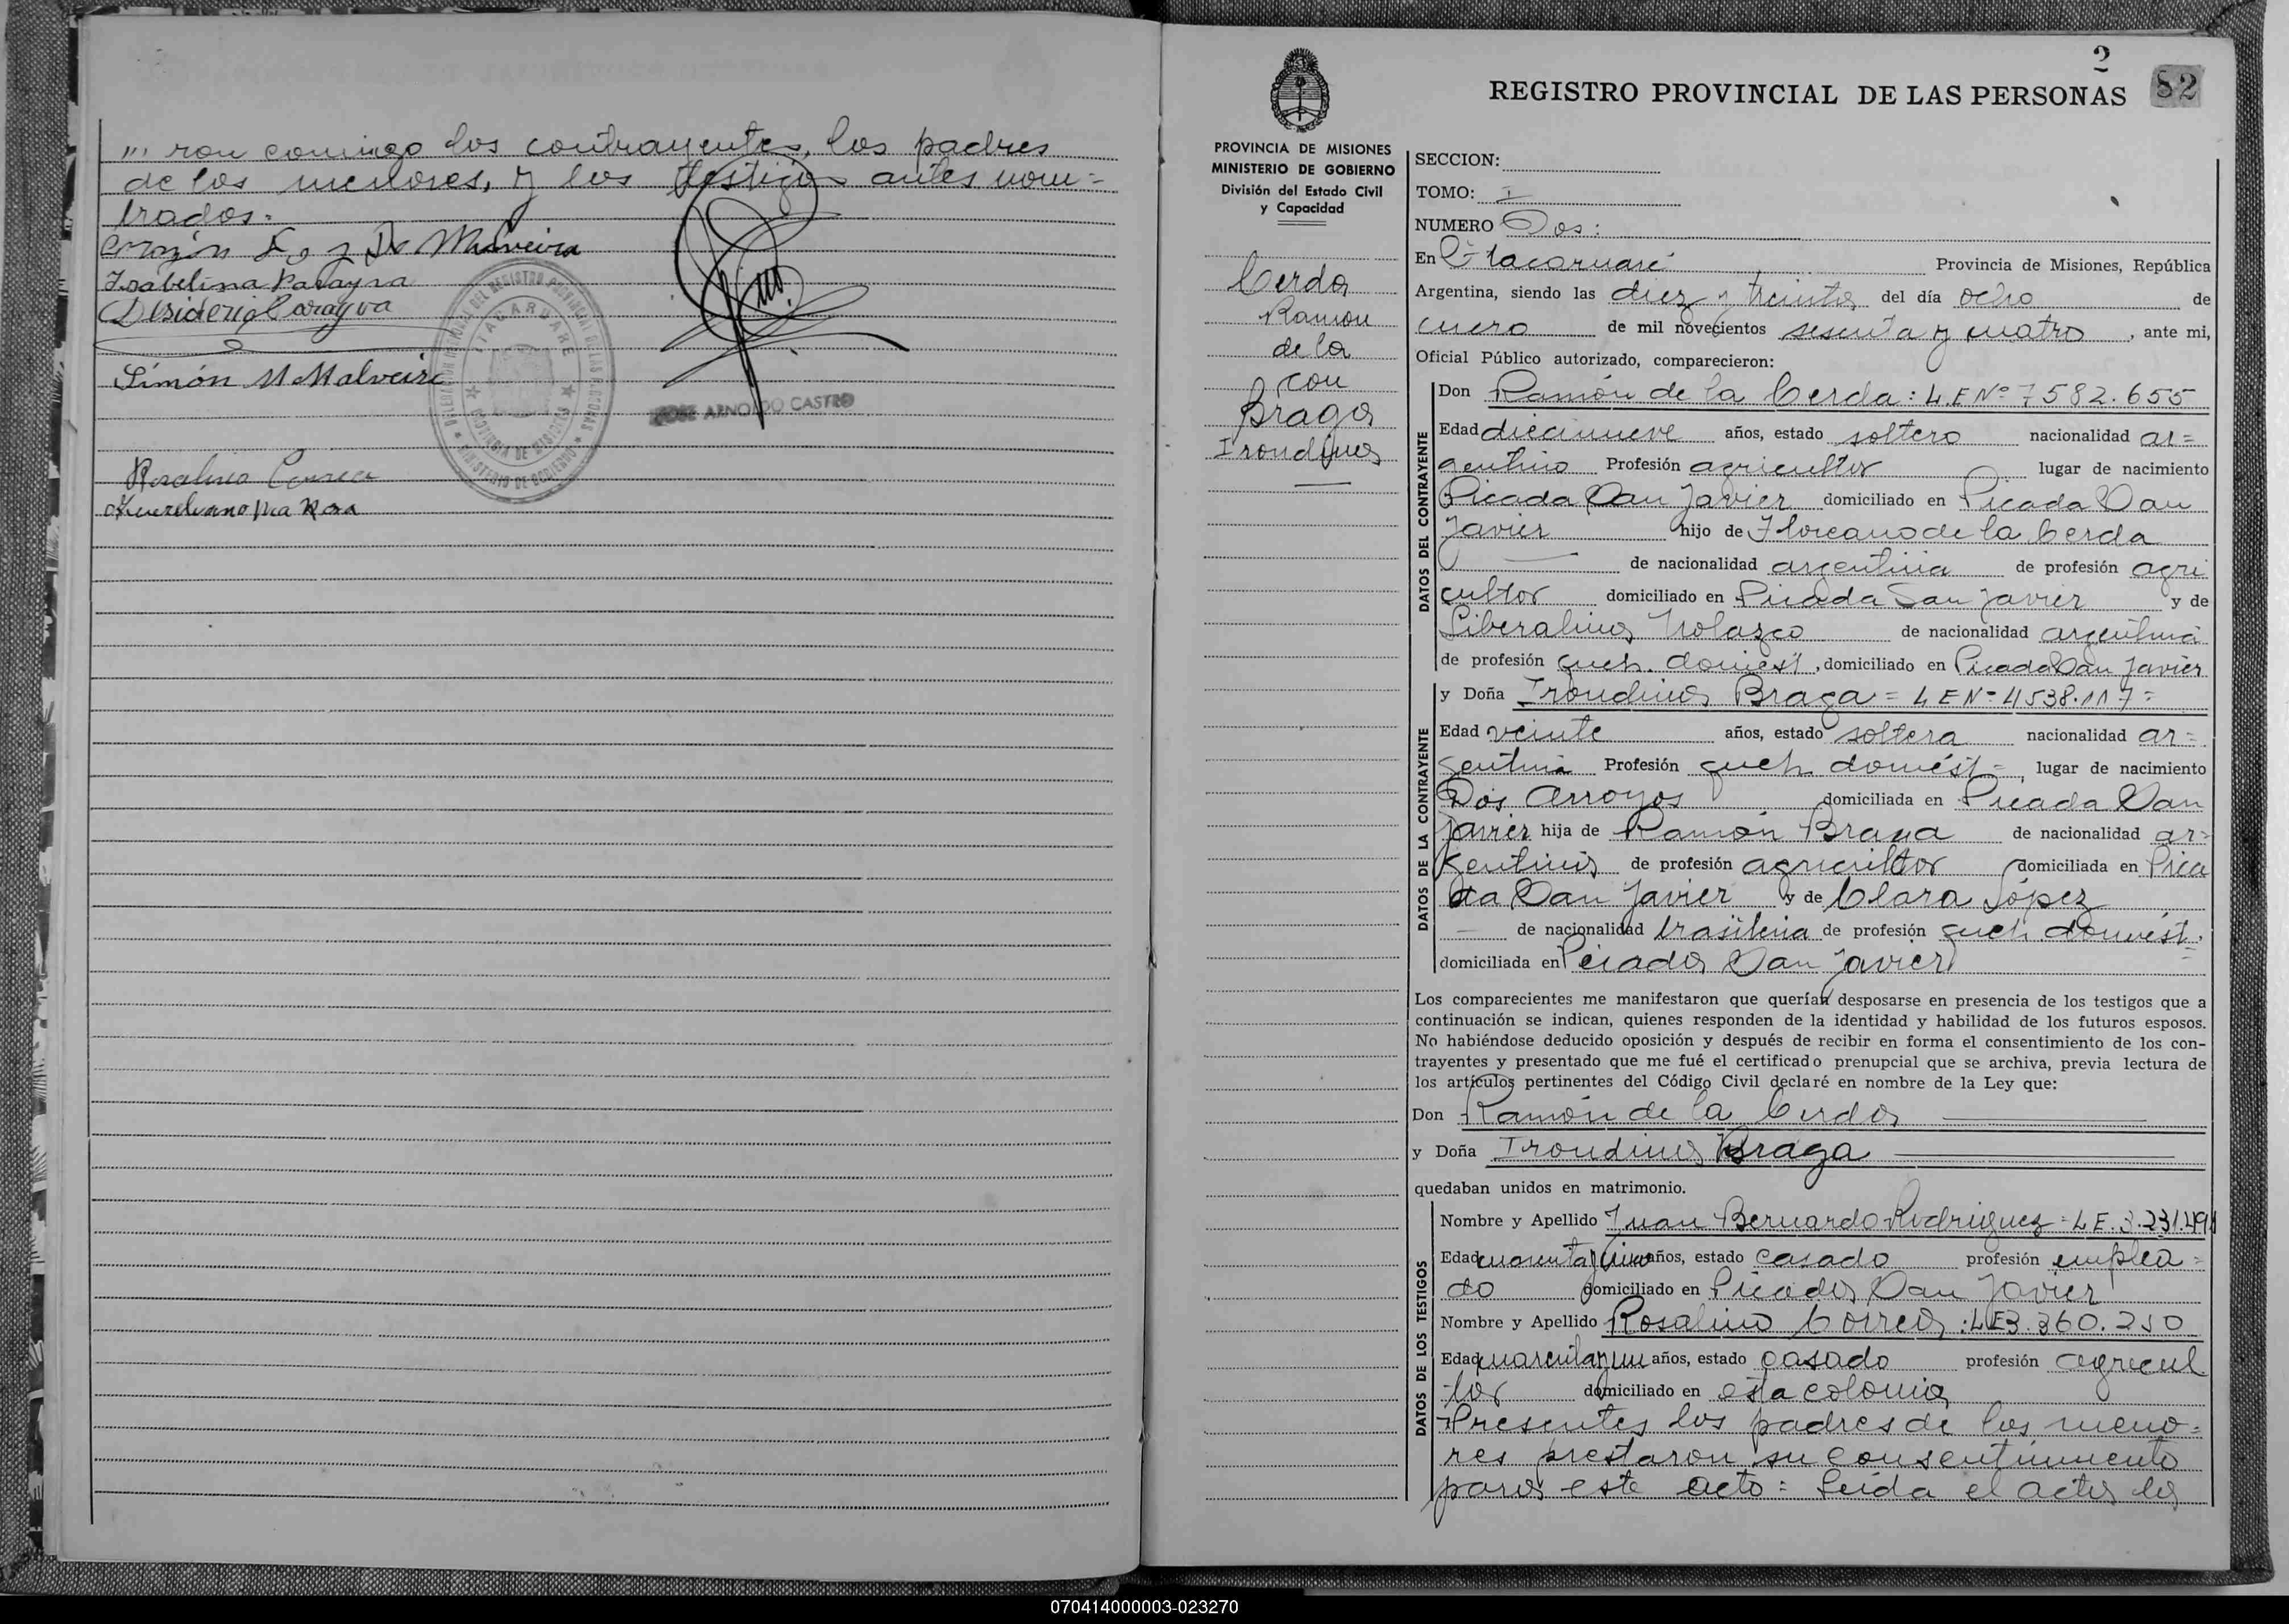 '''ron conmigo los contrayentes, los padres
de los menores, y los testigos antes nom=
brados=
De Malveira
Isabelina
Desiderio
Simón M Malveira
DELEGACION DEL REGISTRO PROVINCIAL DE LAS PERSONAS
ITACARUARE
PROVINCIA DE MISIONES
MINISTERIO DE GOBIERNO
JOSE ARNOLDO CASTRO
Rosalino Correa
2
82
REGISTRO PROVINCIAL DE LAS PERSONAS
PROVINCIA DE MISIONES
MINISTERIO DE GOBIERNO
División del Estado Civil
y Capacidad
Cerda
Ramon
de la
con
Braga
Irondina
SECCION:
TOMO: I
NUMERO Dos:
En Cª Itacaruaré Provincia de Misiones, República
Argentina, siendo las diez y treinta del día ocho de
enero de mil novecientos sesenta y cuatro, ante mi,
Oficial Público autorizado, comparecieron:
DATOS DEL CONTRAYENTE
Don Ramón de la Cerda: L.E Nº 7582.655
Edad diecinueve años, estado soltero nacionalidad ar=
gentino Profesión agricultor lugar de nacimiento
Picada San Javier domiciliado en Picada San
Javier hijo de Floreano de la Cerda
de nacionalidad argentina de profesión agri
cultor domiciliado en Picada San Javier y de
Liberalina Nolazco de nacionalidad argentina
de profesión queh. domést, domiciliado en Picada San Javier
DATOS DE LA CONTRAYENTE
y Doña Irondina Braga = L E Nº 4538.117=
Edad veinte años, estado soltera nacionalidad ar=
gentina Profesión queh domést=, lugar de nacimiento
Dos Arroyos domiciliada en Picada San
Javier hija de Ramón Braga de nacionalidad ar=
gentina de profesión agricultor domiciliada en Pica
da San Javier y de Clara López
de nacionalidad brasileña de profesión queh. domést.
domiciliada en Picada San Javier
Los comparecientes me manifestaron que querían desposarse en presencia de los testigos que a
continuación se indican, quienes responden de la identidad y habilidad de los futuros esposos.
No habiéndose deducido oposición y después de recibir en forma el consentimiento de los con-
trayentes y presentado que me fué el certificado prenupcial que se archiva, previa lectura de
los artículos pertinentes del Código Civil declaré en nombre de la Ley que:
Don Ramón de la Cerda
y Doña Irondina Braga
quedaban unidos en matrimonio.
DATOS DE LOS TESTIGOS
Nombre y Apellido Juan Bernardo Rodriguez=L E. 3.231.491
Edad años, estado casado profesión emplea=
do domiciliado en Picada San Javier
Nombre y Apellido Rosalino Correa :L E 3.360.250
Edad cuarenta y un años, estado casado profesión agricul
tor domiciliado en esta colonia
Presentes los padres de los meno=
res prestaron su consentimiento
para este acto= Leida el acta la
070414000003-023270